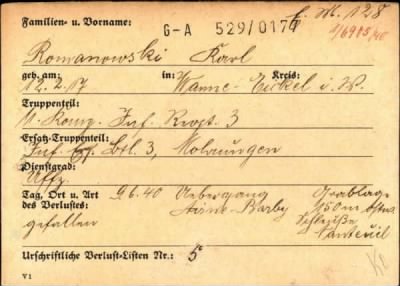 f. M. 128
Familien- u. Vorname: G-A 529/0177
Romanowski Karl 1/6985/40
geb. am: in: Kreis:
12.2.17 Wanne-Eickel i. W.
Truppenteil:
11. Komp. Inf. Regt. 3
Ersatz-Truppenteil:
Inf. Ers. Btl. 3, Mohrungen
Dienstgrad:
Uffz.
Tag, Ort u. Art des Verlustes: 9.6.40 Uebergang Grablage
gefallen Aisne Barby 150 m
Schleuße
Nanteuil
Urschriftliche Verlust-Listen Nr.: 5
V1